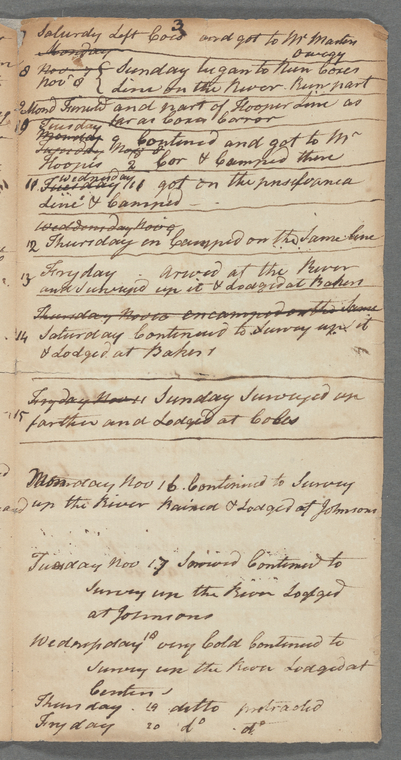 3
7 Saturdy Left Coxs and got to Mr Martin
Monday Owegy
8 Nov 7
Nov 8 { Sunday began to Run Coxes
Line on the River. Run part
9 Mond and part of Hooper Line as
10 Tuesday far as Coxes Cornor
Monday 9 Contined and got to Mr
Hoopes 2d Cor & Camped there
Wednesday
11 Tuesday 11 got on the pnsilvanea
Line & Camped
Weddensday Nov
12 Thursday on Camped on the Same line
13 Fryday arived at the River
and Surveyed up it & Lodged at Bakers
Thursday Nov encamped on the Same
14 Saturday Continued to Survey up it
& Lodged at Bakers
Fryday Nov 11 Sunday Surveyed up
15 farther and Lodged at Coles
Monday Nov 16. Continued to Survey
up the River Rained & Lodged at Johnsons
Tuesday Nov 17 Snowed Continued to
Survey up the River Lodged
at Johnsons
Wednsday 18 very Cold Continued to
Survey up the River Lodged at
Thursday . 19 ditto protracted
Fryday 20 do . do